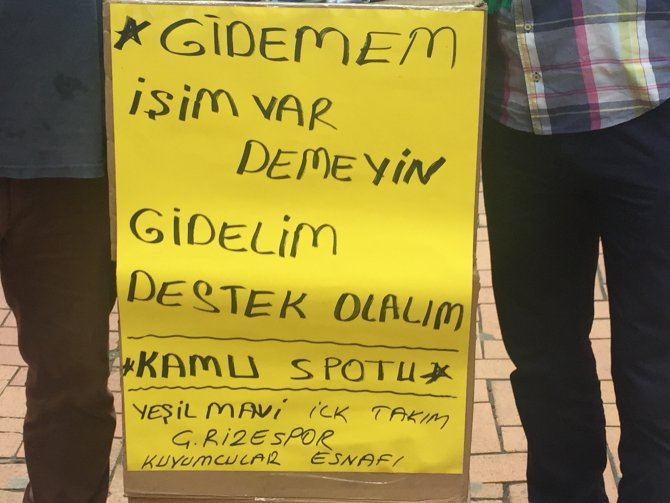 *GİDEMEM
İŞİM VAR
DEMEYİN
GİDELİM
DESTEK OLALIM
*KAMU SPOTU*
YEŞİL MAVİ İLK TAKIM
Ç.RİZESPOR
KUYUMCULAR ESNAFI